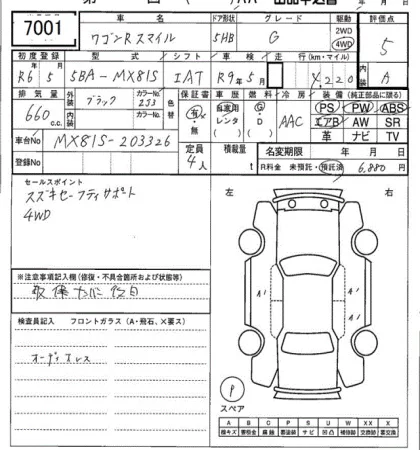 7001
車名
ドア形状
グレード
駆動
評価点
ワゴンR スマイル
5HB
G
2WD
4WD
5
初度登録
型式
シフト
車検
走行(km・マイル)
内装
R6 5
5BA-MX81S
IAT
R9年5月
4,220
A
排気量
外装
カラーNo.
色替
カラーNo.
保証書
車歴
燃料
冷房
装備(純正部品に限る)
660 c.c.
ブラック
ZJ3
有・無
自家用
レンタ
G・D
AAC
PS PW ABS
エアB AW SR
革 ナビ TV
車台No
MX81S-203326
登録No
定員
4人
積載量
t
名変期限 年 月 日
R料金 未預託・預託済 6,880円
セールスポイント
スズキセーフティサポート
4WD
左 右
※注意事項記入欄(修復・不具合箇所および状態等)
取保ナビ後日
検査員記入 フロントガラス(A・飛石、X要ス)
オーディオレス
A'
A' A'
P
スペア
A B C P S U W X XX